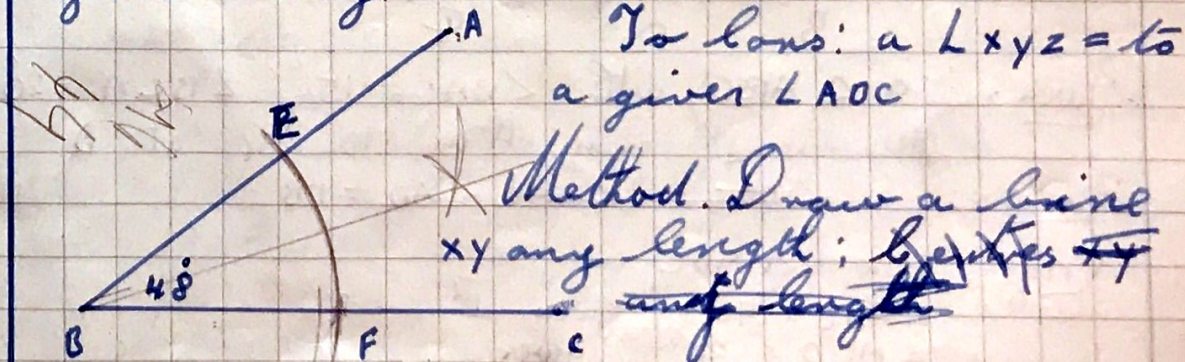 A
To cons: a ∠xyz = to
a given ∠AOC
E
Method. Draw a line
xy any length;
48°
any length
B F C